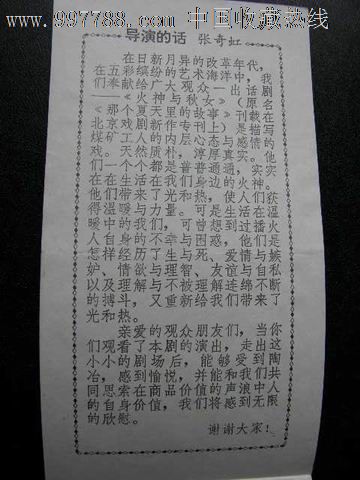 www.997788.com 中国收藏热线
导演的话 张奇虹
在日新月异的改革年代，
在五彩缤纷的艺术海洋中，我
们奉献给广大观众一出话剧
——《火神与秋女》（原名
《那个夏天里的故事》刊载在
北京戏剧新作专刊上）是描写
煤矿工人的内层心态与感情的
戏。天然质朴，淳厚真实。他
们一个个都是普普通通，实实
在在生活在我们身边的火神。
他们带来了光和热，使人们获
得温暖与力量。可是生活在温
暖中的我们，可曾想到过播火
人自身的不幸与困惑，他们是
怎样经历了生与死、爱情与嫉
妒、情欲与理智、友谊与自私
以及理解与不被理解连绵不断
的搏斗，又重新给我们带来了
光和热。
亲爱的观众朋友们，当你
们观看了本剧的演出，走出这
小小的剧场后，能够受到陶
冶，感到愉悦，并能和我们共
同思索在商品价值的声浪中人
的自身价值，我们将感到无限
的欣慰。
谢谢大家！